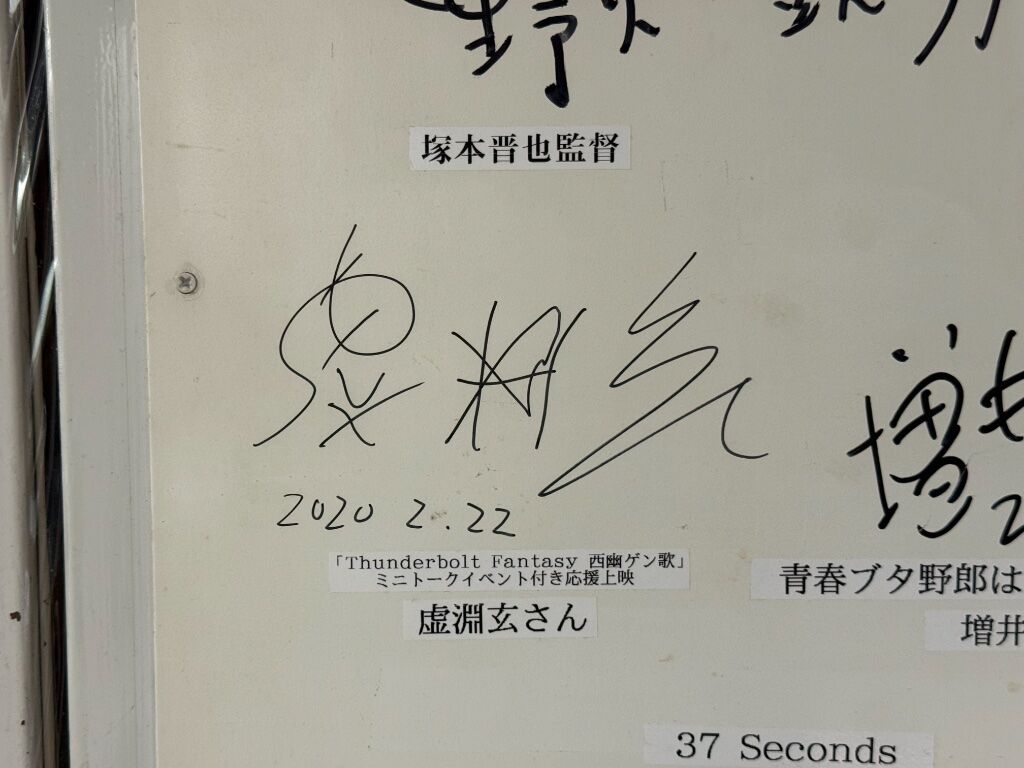 塚本晋也監督
虚淵玄
2020 2.22
「Thunderbolt Fantasy 西幽ゲン歌」
ミニトークイベント付き応援上映
虚淵玄さん
増
青春ブタ野郎は
増井
37 Seconds